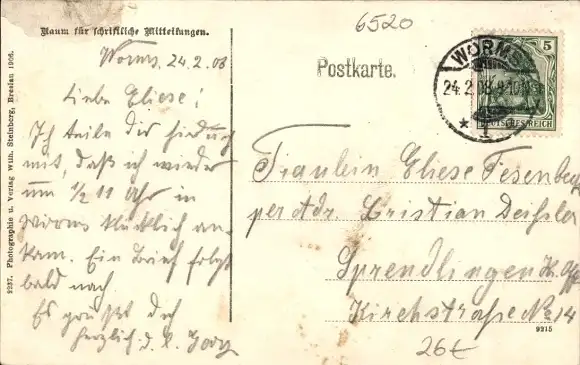 Raum für schriftliche Mitteilungen.
Worms, 24.2.08
Liebe Eliese!
Ich teile Dir hiedurch
mit, daß ich wieder
um 1/2 11 Uhr in
Worms glücklich an-
kam. Ein Brief folgt
bald nach
Es grüßt dich
herzlich d. l. Georg
9237. Photographie u. Verlag Wilh. Steinberg, Breslau 1906.
6520
Postkarte.
WORMS
24.2.08.9-10
* 1
5
DEUTSCHES REICH
Fräulein Eliese
per Adr. Cristian
Sprendlingen K.
Kirchstraße No 14
9215
26€